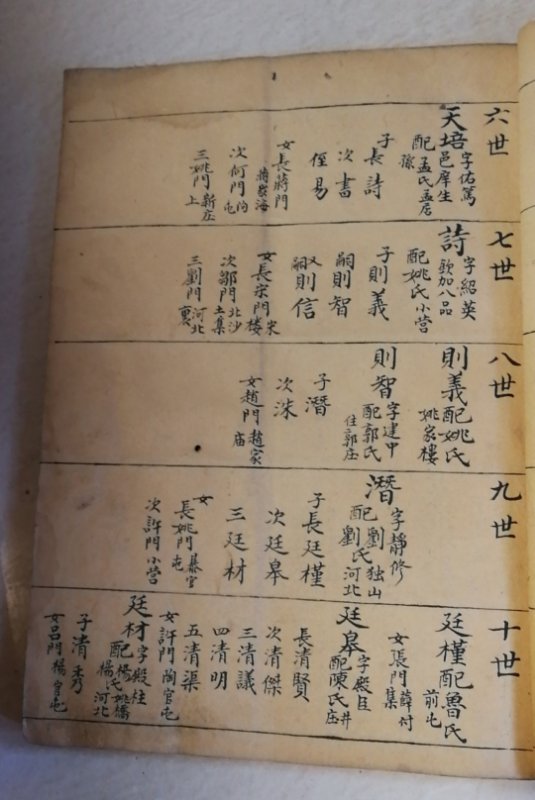 六世
天培
字佑篤
邑庠生
配孟氏孟居
孫
子長詩
次書
侄易
女長蔣門
次何門
屯
三姚門新庄
上
七世
詩
字紹英
欽加八品
配姚氏小營
子則義
嗣則智
又嗣則信
女長宋門宋
樓
次鄒門北沙
土集
三劉門河北
裏
八世
則義配姚氏
姚家樓
則智
字建中
配郭氏
住郭庄
子潛
次洙
女趙門趙家
庙
九世
潛
字靜修
配劉独山
劉氏河北
子長廷槿
次廷皋
三廷材
女長姚門綦官
屯
次許門小營
十世
廷槿配魯氏
前屯
女張門薛村
集
廷皋
字殿臣
配陳氏井
庄
長清賢
次清傑
三清議
四清明
五清渠
女許門陶官屯
廷材
字殿柱
配楊姚橋
楊氏河北
子清秀
女呂門楊官屯